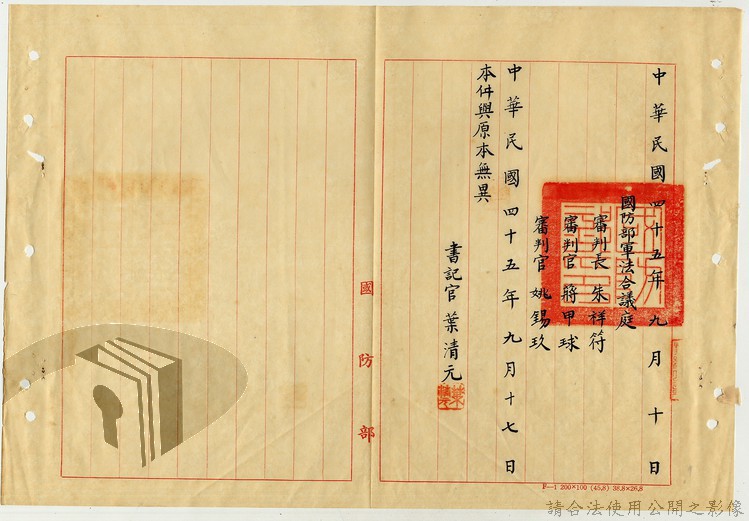 中華民國四十五年九月十日
國防部軍法合議庭
審判長朱祥符
審判官蔣甲球
審判官姚錫玖
中華民國四十五年九月十七日
本件與原本無異
書記官葉清元
國防部
F—1 200×100 (45.8) 38.8×26.8
請合法使用公開之影像